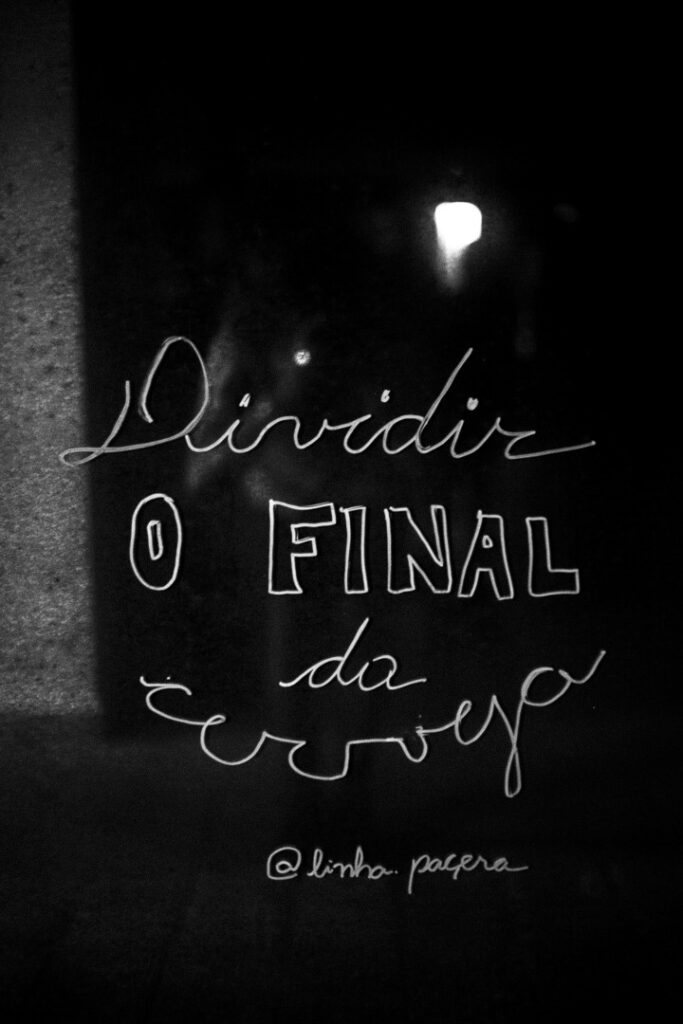 Dividir
O FINAL
da
cerveja
@linha.paçera